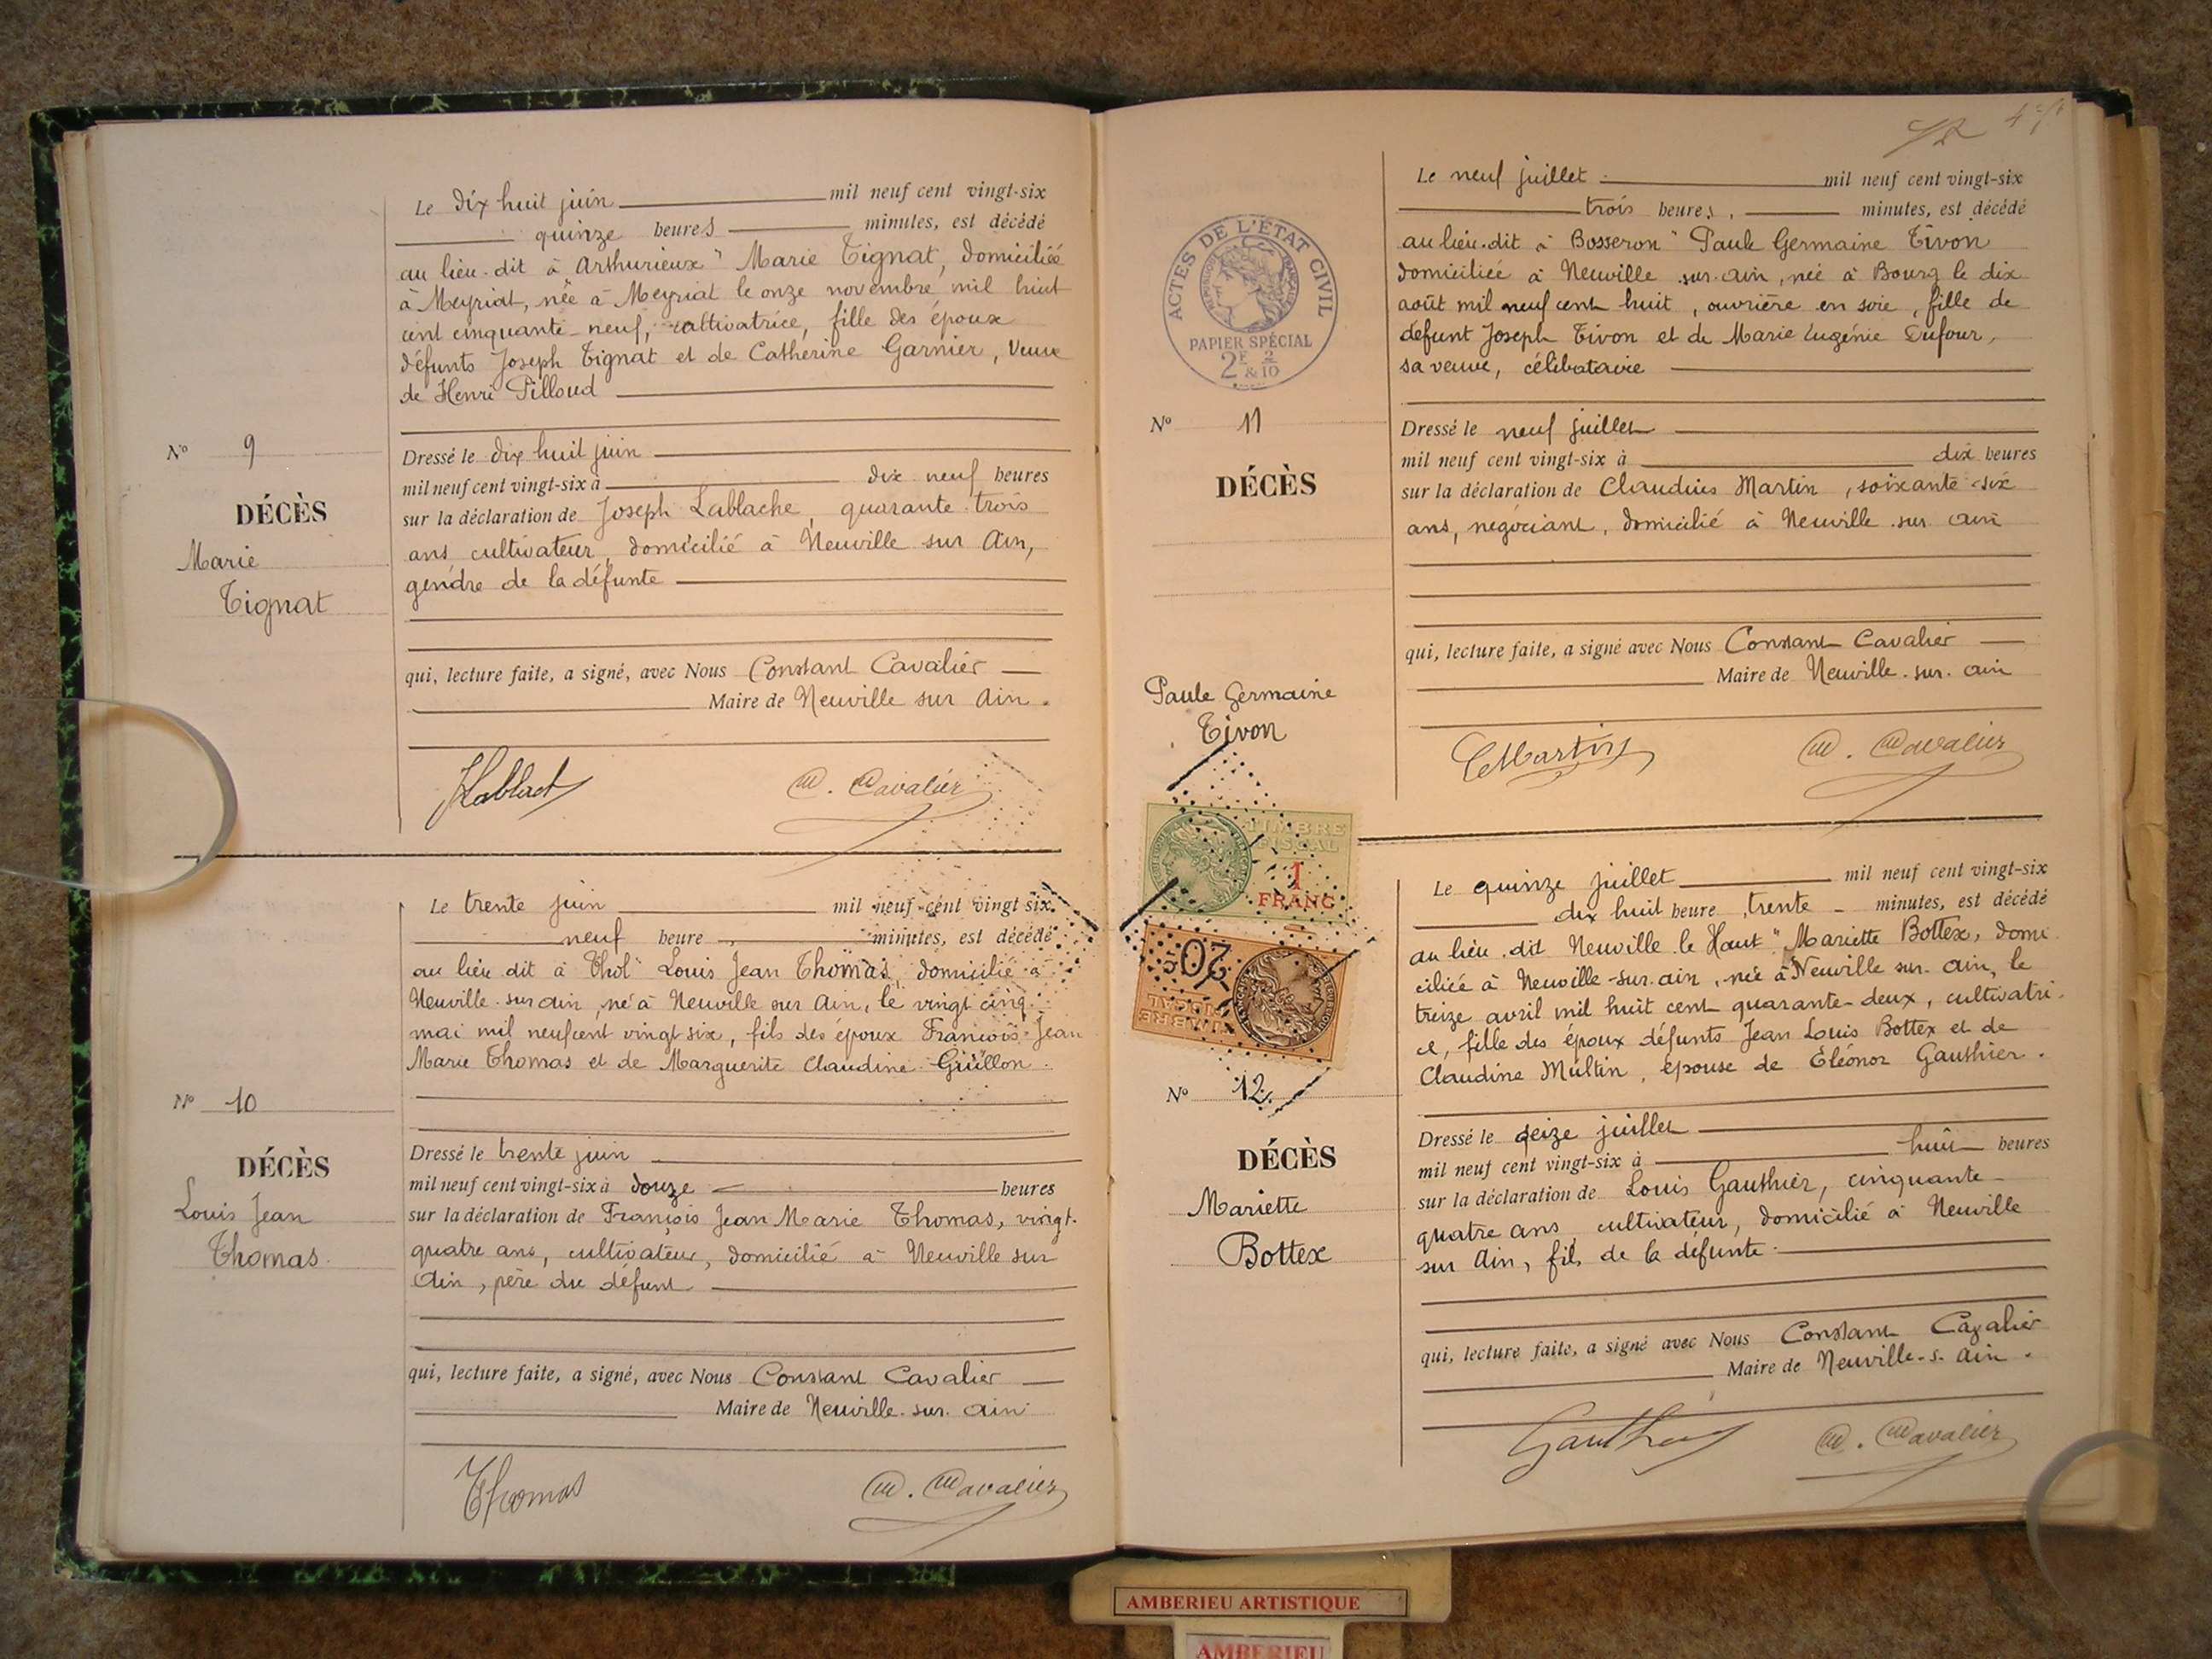 Le dix huit juin mil neuf cent vingt-six
quinze heures minutes, est décédé
au lieu-dit à Arthurieux" Marie Tignat, domiciliée
à Meyriat, née à Meyriat le onze novembre mil huit
cent cinquante-neuf, cultivatrice, fille des époux
défunts Joseph Tignat et de Catherine Garnier, Veuve
de Henri Pilloud
Nº 9
DÉCÈS
Marie
Tignat
Dressé le dix huit juin
mil neuf cent vingt-six à dix neuf heures
sur la déclaration de Joseph Lablache, quarante-trois
ans cultivateur, domicilié à Neuville sur Ain,
gendre de la défunte
qui, lecture faite, a signé, avec Nous Constant Cavalier
Maire de Neuville sur Ain.
C. Cavalier
Le trente juin mil neuf cent vingt six
neuf heure, minutes, est décédé
au lieu dit à Thol" Louis Jean Thomas, domicilié à
Neuville-sur ain, né à Neuville sur Ain, le vingt cinq
mai mil neuf cent vingt six, fils des époux François-Jean
Marie Thomas et de Marguerite Claudine Guillon.
Nº 10
DÉCÈS
Louis Jean
Thomas.
Dressé le trente juin
mil neuf cent vingt-six à douze heures
sur la déclaration de François Jean Marie Thomas, vingt-
quatre ans, cultivateur, domicilié à Neuville sur
Ain, père du défunt
qui, lecture faite, a signé, avec Nous Constant Cavalier
Maire de Neuville-sur-ain
Thomas
C. Cavalier
Le neuf juillet mil neuf cent vingt-six
trois heures, minutes, est décédé
au lieu-dit à Bosseron" Paule Germaine Tivon
domiciliée à Neuville-sur-ain, née à Bourg le dix
août mil neuf cent huit, ouvrière en soie, fille de
défunt Joseph Tivon et de Marie Eugénie Dufour,
sa veuve, célibataire
ACTES DE L'ÉTAT CIVIL
RÉPUBLIQUE FRANÇAISE
PAPIER SPÉCIAL
2F & 2/10
Nº 11
DÉCÈS
Paule Germaine
Tivon
Dressé le neuf juillet
mil neuf cent vingt-six à dix heures
sur la déclaration de Claudius Martin, soixante-six
ans, négociant, domicilié à Neuville-sur ain
qui, lecture faite, a signé avec Nous Constant Cavalier
Maire de Neuville-sur-ain
C Martin
C. Cavalier
TIMBRE
FISCAL
1
FRANC
20c
TIMBRE
FISCAL
Le quinze juillet mil neuf cent vingt-six
dix huit heure, trente - minutes, est décédé
au lieu-dit Neuville-le Haut" Mariette Bottex, domi
ciliée à Neuville-sur-ain, née à Neuville sur-ain, le
treize avril mil huit cent quarante-deux, cultivatri-
ce, fille des époux défunts Jean Louis Bottex et de
Claudine Multin, épouse de Eléonor Gauthier.
Nº 12.
DÉCÈS
Mariette
Bottex
Dressé le seize juillet
mil neuf cent vingt-six à huit heures
sur la déclaration de Louis Gauthier, cinquante-
quatre ans, cultivateur, domicilié à Neuville
sur Ain, fils de la défunte.
qui, lecture faite, a signé avec Nous Constant Cavalier
Maire de Neuville-s-ain.
Gauthier
C. Cavalier
AMBERIEU ARTISTIQUE
AMBERIEU